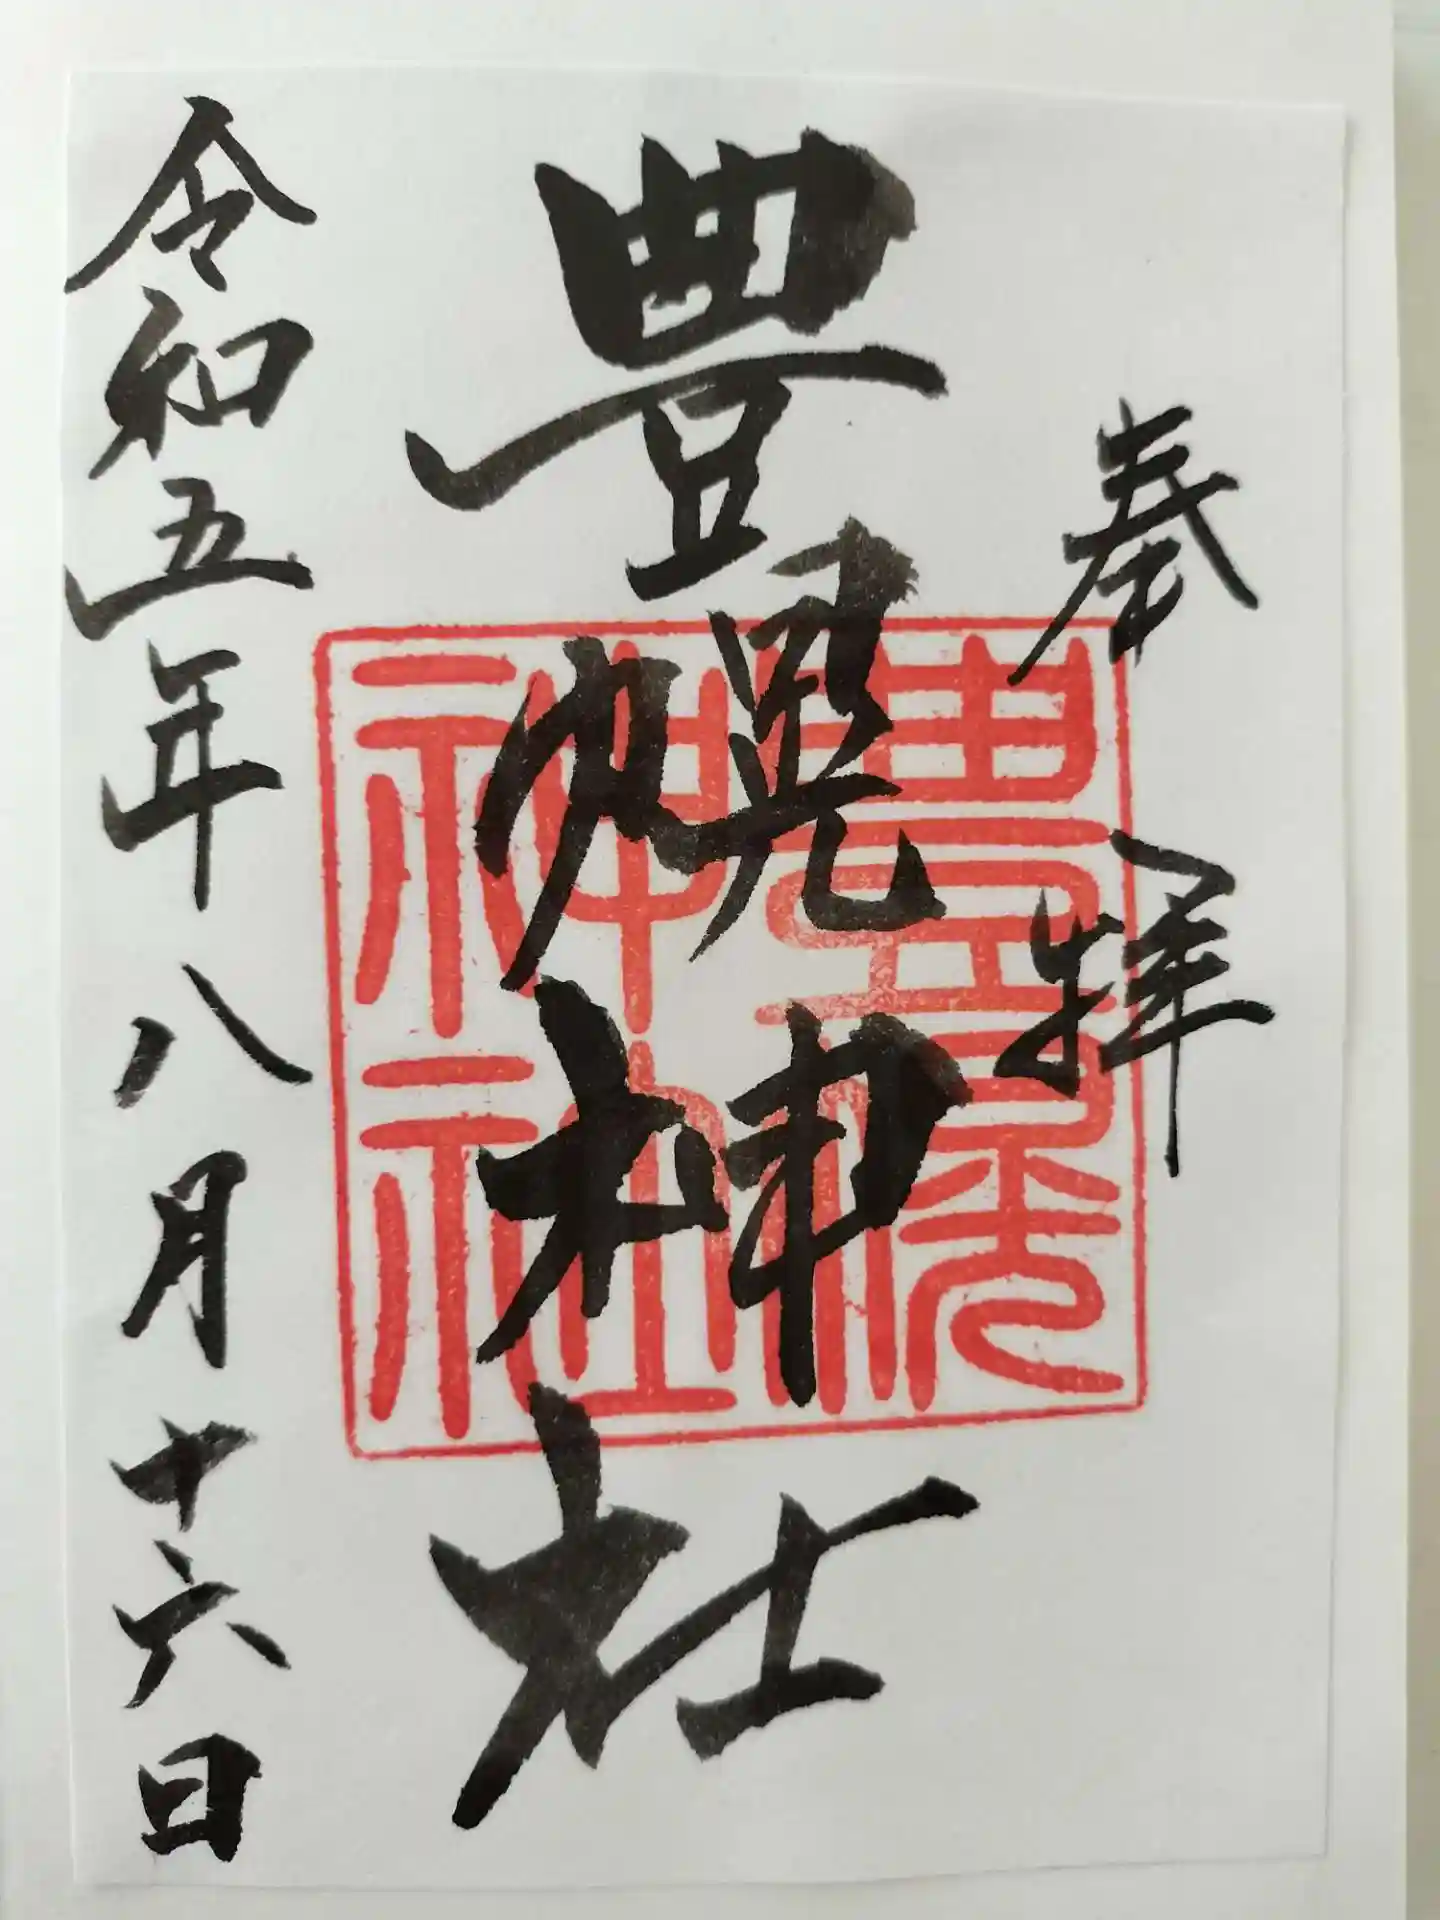 奉拝
豊幌神社
豊幌
神社
令和五年八月十六日